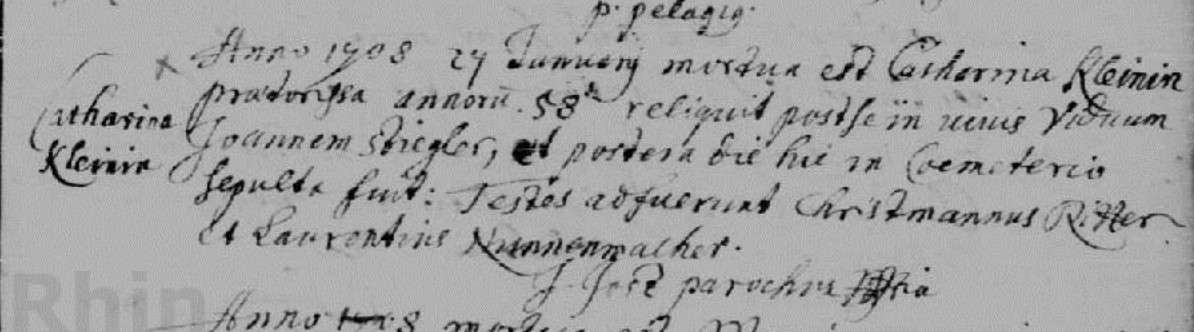 p. pelagiq.
Anno 1708 27 Januarij mortua est Catharina Kleinin
Catharina
Kleinin
prætorissa annorũ. 58 reliquit post se in vivis Viduum
Joannem Stiegler, et postera die hic in Coemeterio
sepulta fuit: Testes adfuerunt Christmannus Ritter
et Laurentius Nunnenmacher.
J. Jost parochus
Anno 1708 mortua est
Rhin